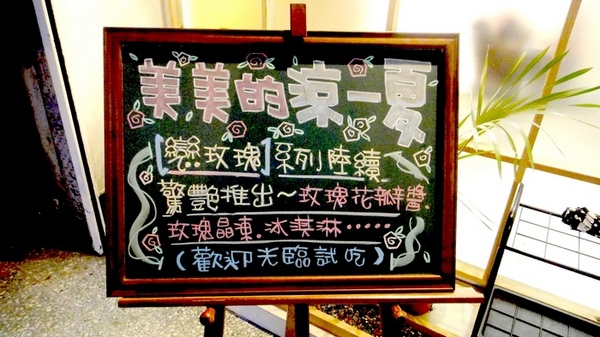 美美的涼一夏
[戀玫瑰]系列陸續
驚艷推出~玫瑰花瓣醬
玫瑰晶凍.冰淇淋……
(歡迎光臨試吃)